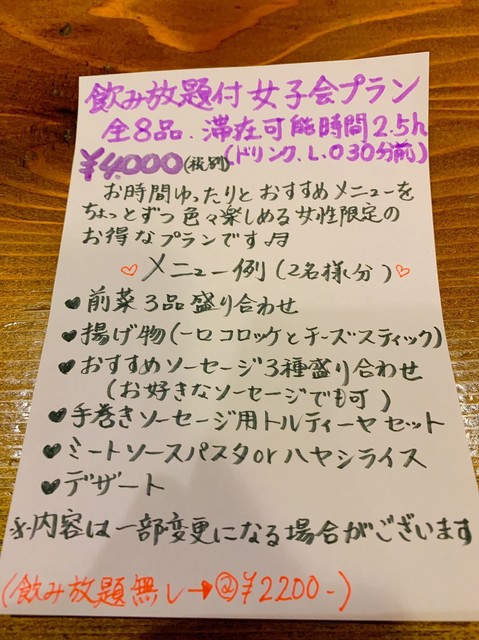 飲み放題付女子会プラン
全8品、滞在可能時間2.5h
¥4,000(税別)(ドリンクL.O30分前)
お時間ゆったりとおすすめメニューを
ちょっとずつ色々楽しめる女性限定の
お得なプランです♫
♡メニュー例(2名様分)♡
♥前菜3品盛り合わせ
♥揚げ物(一口コロッケとチーズスティック)
♥おすすめソーセージ3種盛り合わせ
(お好きなソーセージでも可)
♥手巻きソーセージ用トルティーヤセット
♥ミートソースパスタorハヤシライス
♥デザート
※内容は一部変更になる場合がございます
(飲み放題無し→@¥2200-)